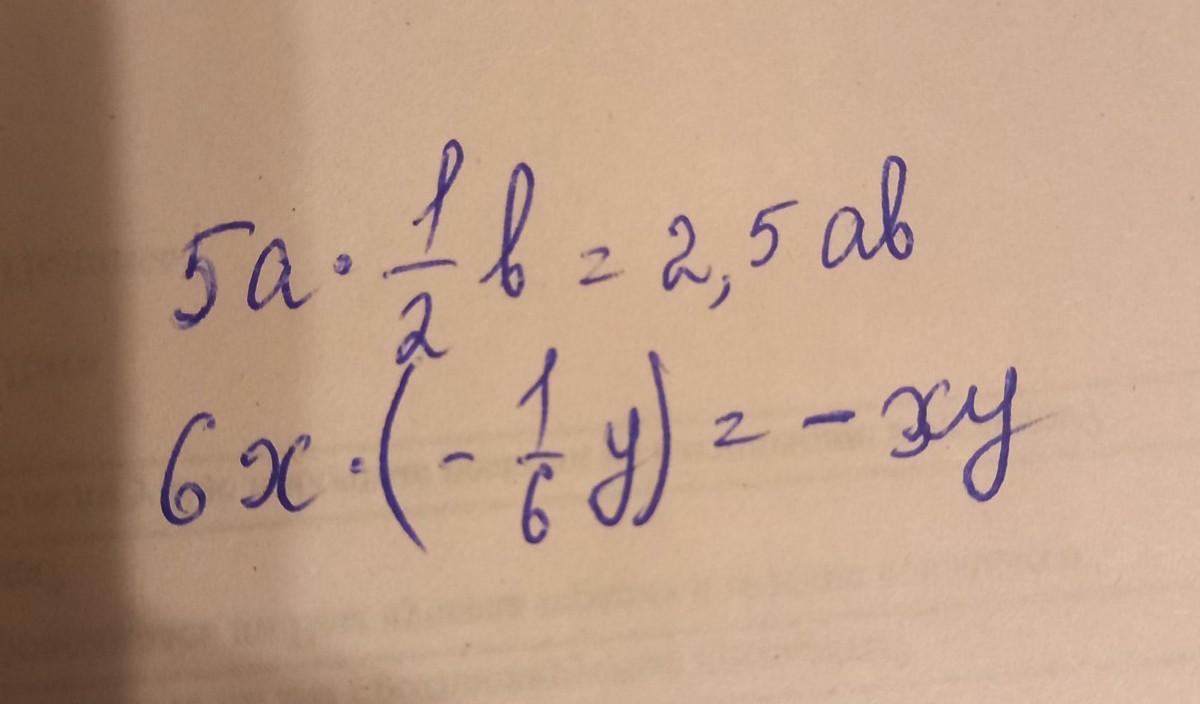 5a · 1/2 b = 2,5 ab
6x · (- 1/6 y) = - xy